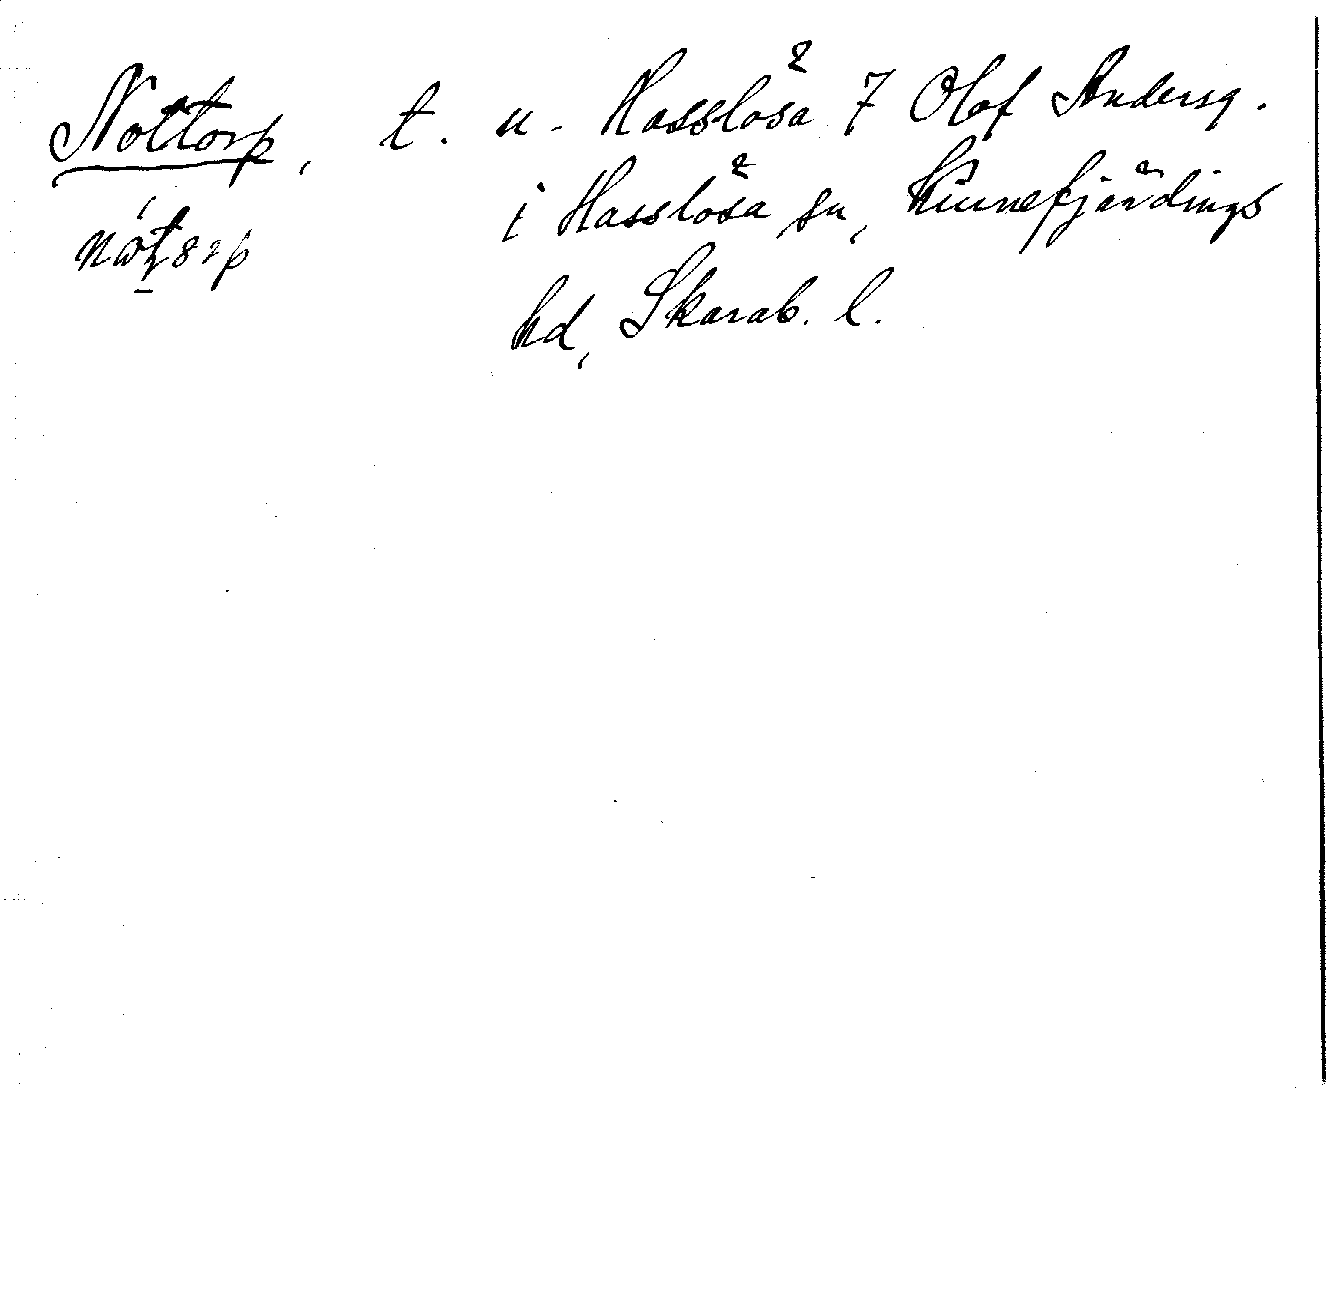 Nöttorp, t. u. Hasslösa 7 Olof Andersg.
i Hasslösa sn, Kinnefjärdings
hd, Skarab. l.